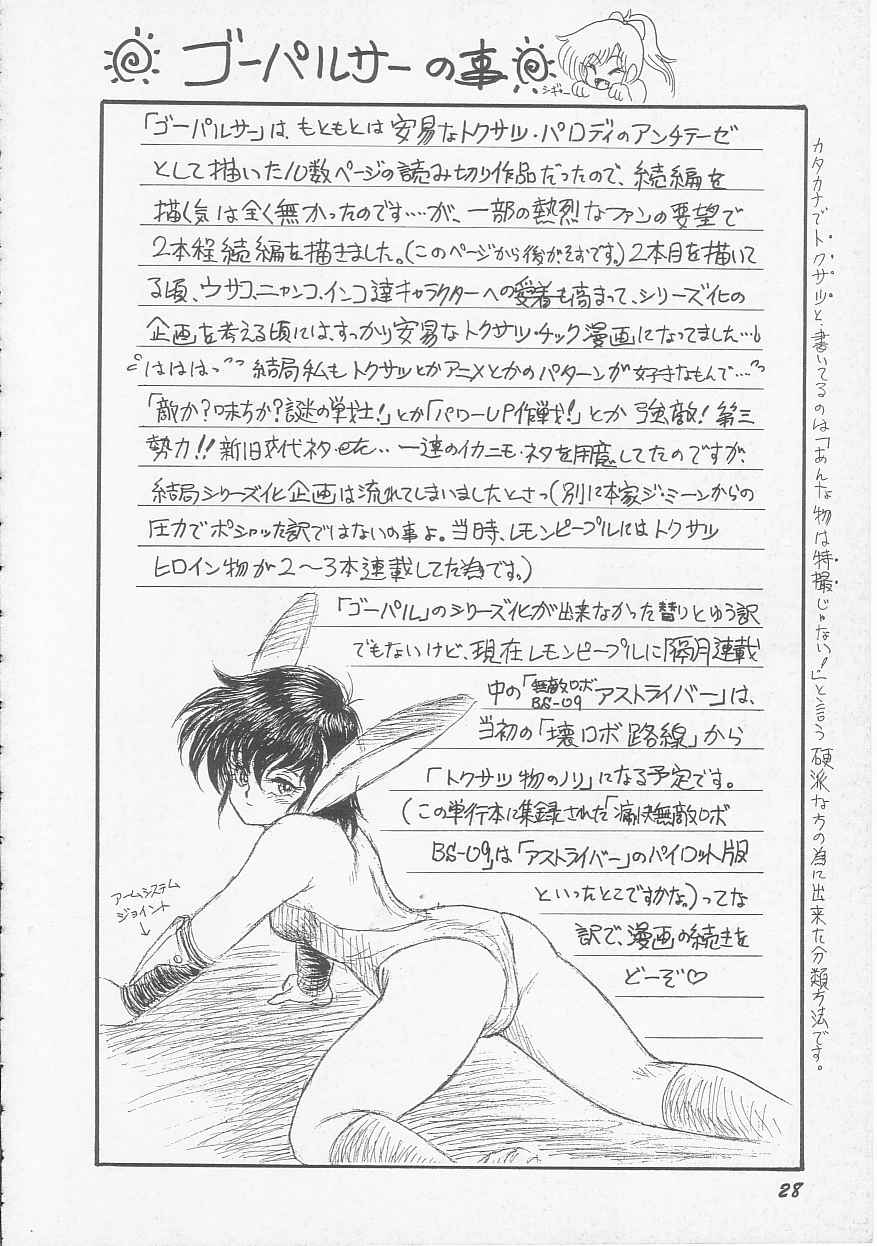 ゴーパルサーの事
シギャー
「ゴーパルサー」は、もともとは安易なトクサツ・パロディのアンチテーゼ
として描いた10数ページの読み切り作品だったので、続編を
描く気は全く無かったのです……が、一部の熱烈なファンの要望で
2本程続編を描きました。(このページから後がそおです。)2本目を描いて
る頃、ウサコ、ニャンコ、インコ達キャラクターへの愛着も高まって、シリーズ化の
企画を考える頃には、すっかり安易なトクサツ・チック漫画になってました…。
はははっ 結局私もトクサツとかアニメとかのパターンが好きなもんで…
「敵か?味方か?謎の戦士!」とか「パワーUP作戦!」とか強敵!第三
勢力!!新旧交代ネタ・etc… 一連のイカニモ・ネタを用意してたのですが、
結局シリーズ化企画は流れてしまいましたとさっ(別に本家ジ・ミーンからの
圧力でポシャッた訳ではないの事よ。当時、レモンピープルにはトクサツ
ヒロイン物が2〜3本連載してた為です。)
「ゴーパル」のシリーズ化が出来なかった替りとゆう訳
でもないけど、現在レモンピープルに隔月連載
中の「無敵ロボBS-09アストライバー」は、
当初の「壊ロボ路線」から
「トクサツ物のノリ」になる予定です。
(この単行本に集録された「痛快無敵ロボ
BS-09」は「アストライバー」のパイロット版
といったとこですかな。)ってな
訳で、漫画の続きを
どーぞ♡
アームシステム
ジョイント
↓
カタカナでトクサツと書いてるのは「あんな物は特撮じゃない!」と言う硬派な方の為に出来た分類方法です。
28